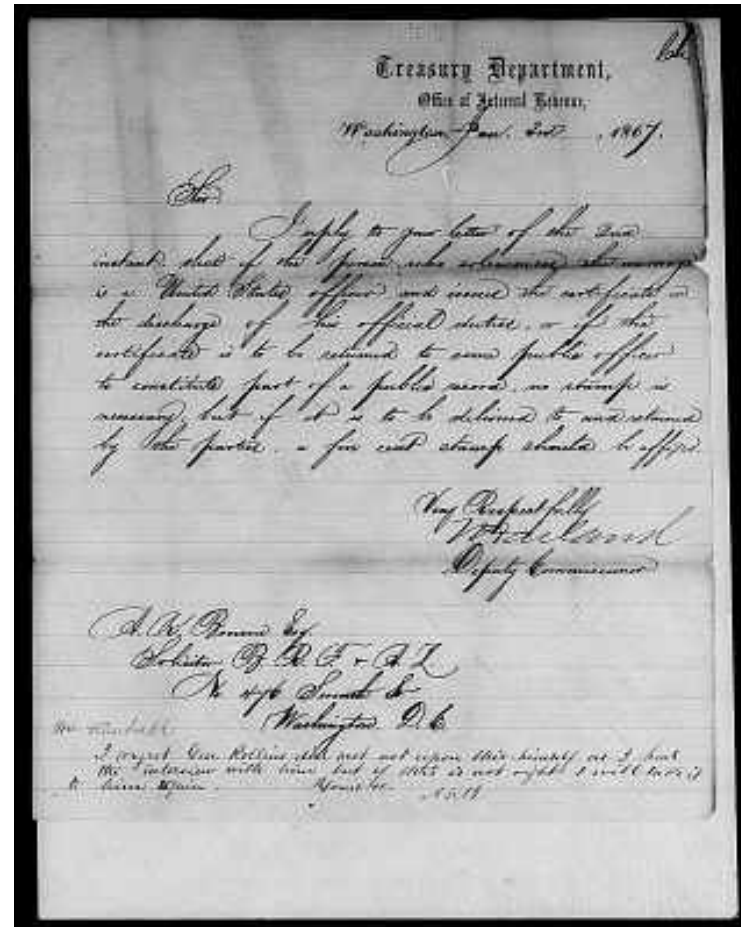 Treasury Department,
Office of Internal Revenue,
Washington Jan. 3rd, 1867.
Sir
I reply to your letter of the 2nd
instant, that if the person who solemnized the marriage
is a United States officer and issued the certificate in
the discharge of his official duties, or if the
certificate is to be returned to some public officer
to constitute part of a public record, no stamp is
necessary, but if it is to be delivered to and retained
by the parties, a five cent stamp should be affixed.
Very Respectfully
Deputy Commissioner
A. K. Browne Esq.
Solicitor B. R. F. & A. L
No 476 Seventh St
Washington. D. C.
I regret Gen Rollins did not act upon this himself as I had
the interview with him but if this is not right I will take it
to him again. Yours &c.